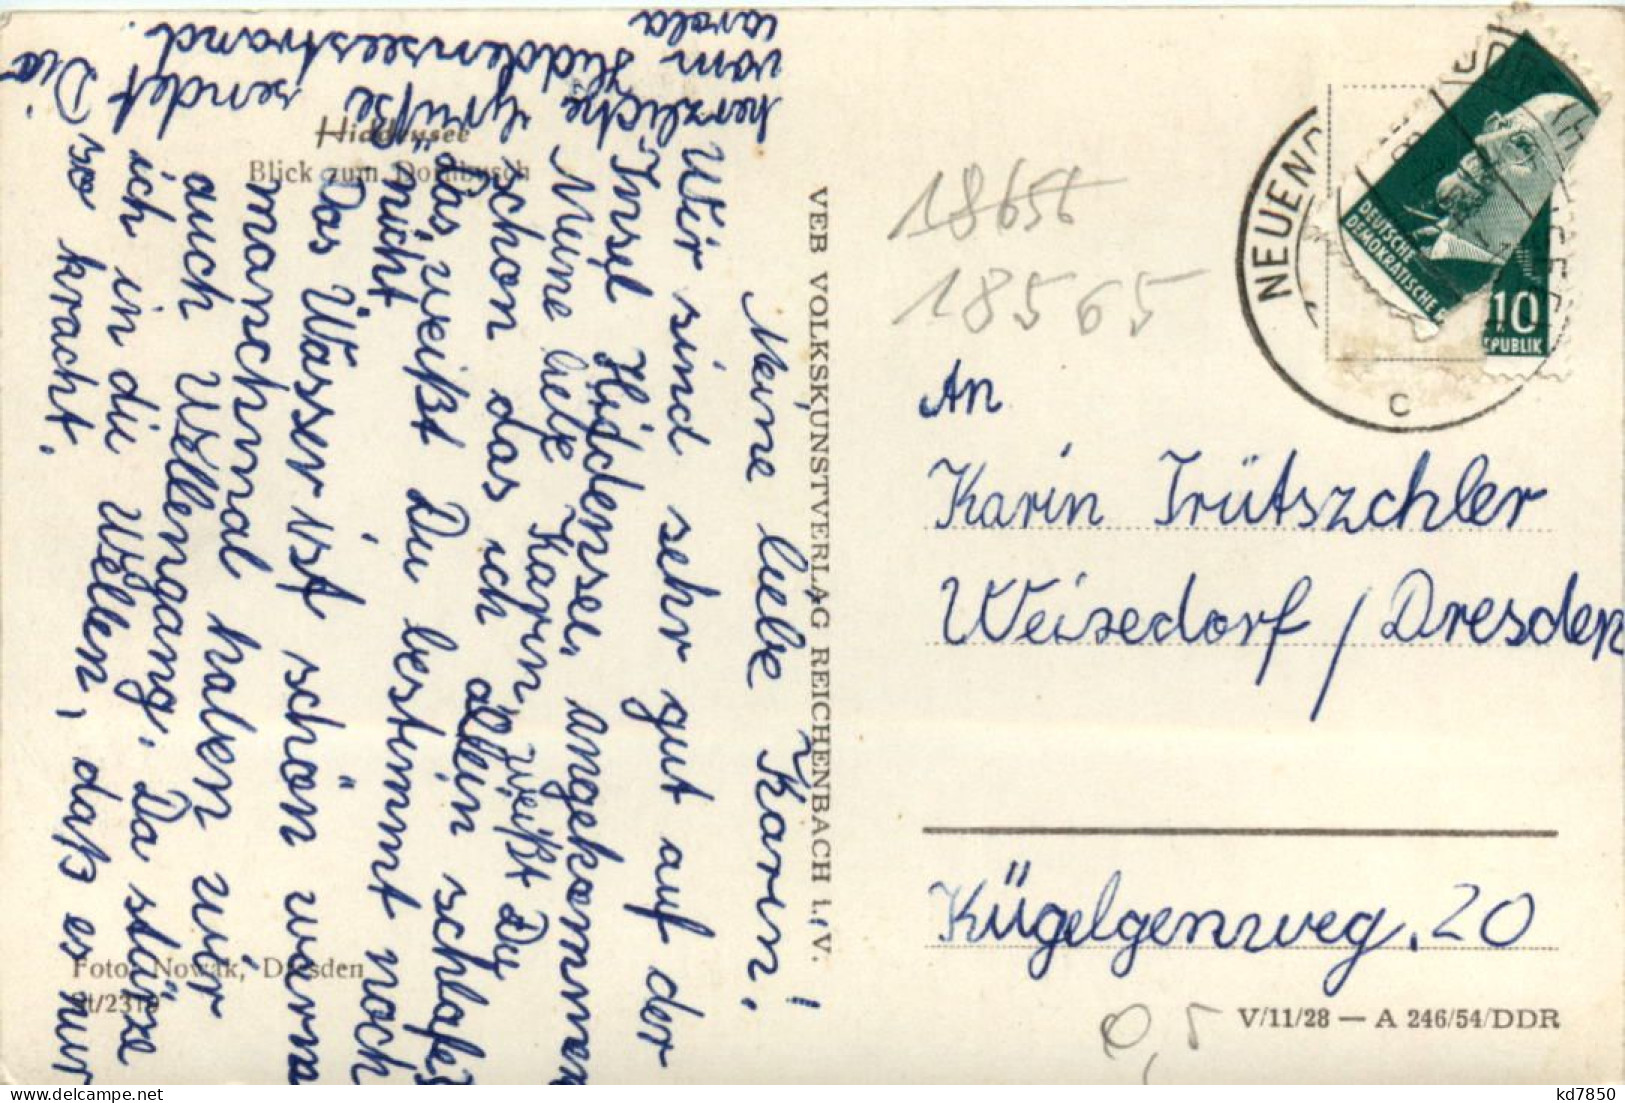 Hiddensee
Blick zum Dornbusch
Meine liebe Karin!
Wir sind sehr gut auf der
Insel Hiddensee, angekommen
Meine liebe Karin, weißt Du
schon das ich allein schlafe?
das, weißt Du bestimmt noch
nicht
Das Wasser ist schön warm
manchmal haben wir
auch Wellengang. Da stürze
ich in die Wellen, daß es nur
so kracht.
herzliche Grüße sendet Dir
vom Hiddenseestrand.
Carola
Foto: Nowak, Dresden
VEB VOLKSKUNSTVERLAG REICHENBACH i. V.
18656
18565
NEUEND
c
DEUTSCHE
DEMOKRATISCHE
10
EPUBLIK
An
Karin Trützschler
Weizedorf / Dresden
Kügelgenweg. 20
0,5
V/11/28 — A 246/54/DDR
kd7850